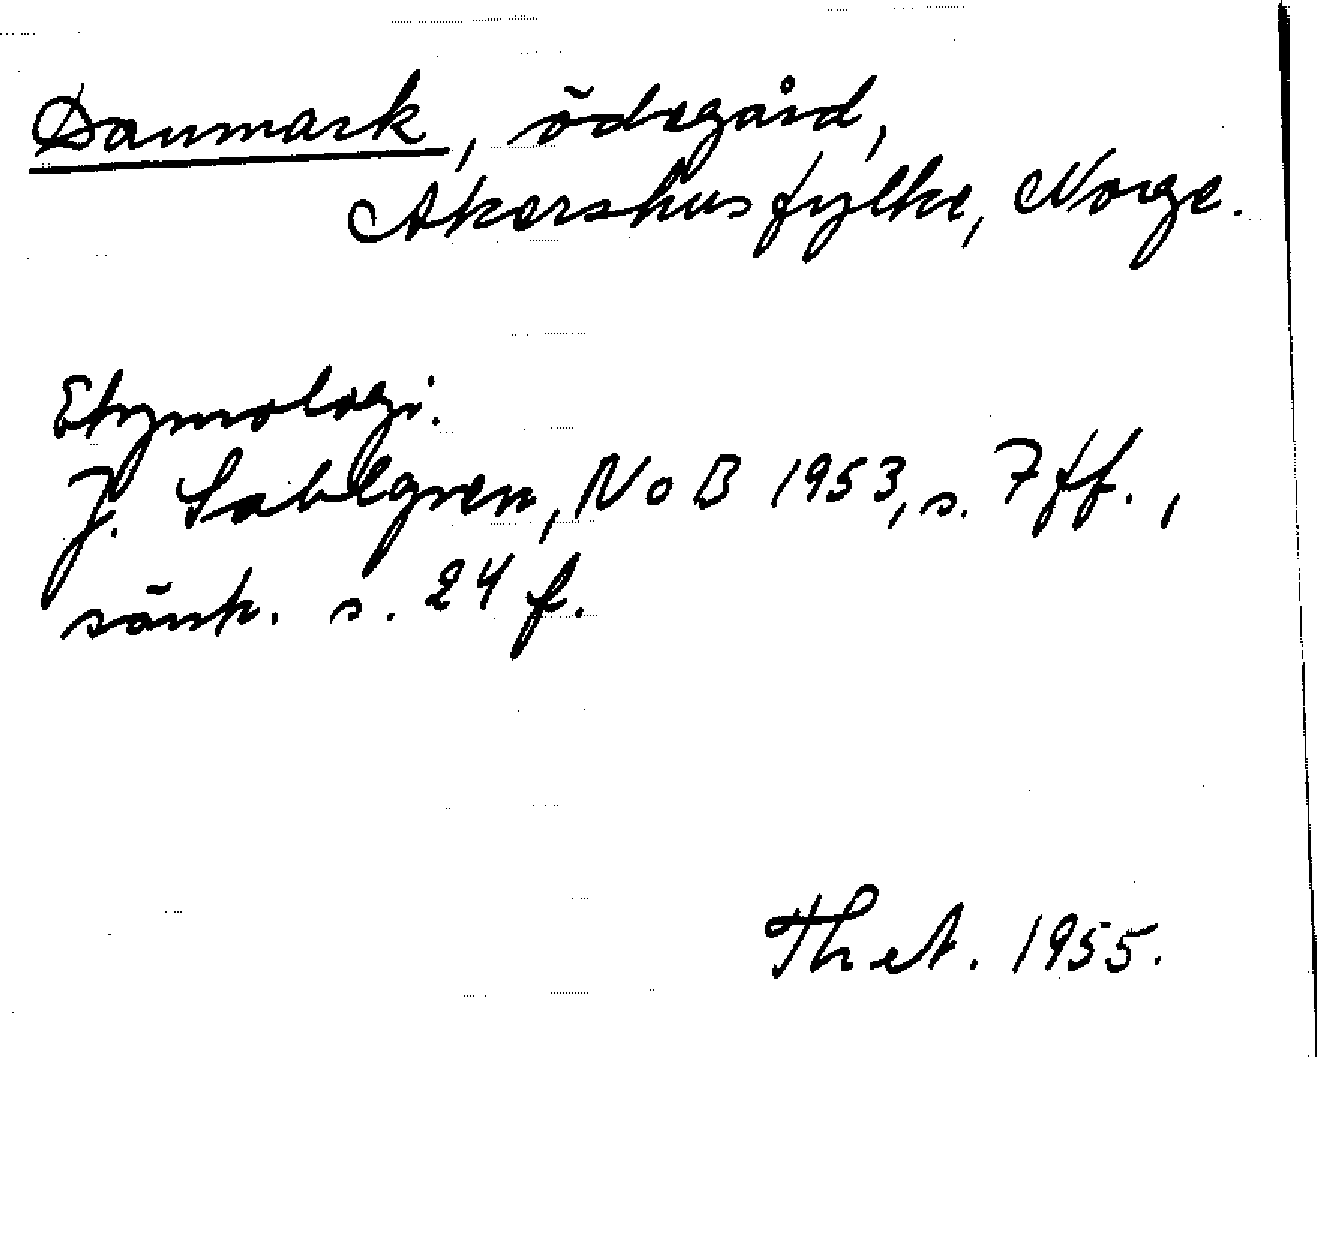 Danmark, ödegård,
Akershus fylke, Norge.
Etymologi.
J. Sahlgren, NoB 1953, s. 7 ff.,
särsk. s. 24 f.
Th et. 1955.